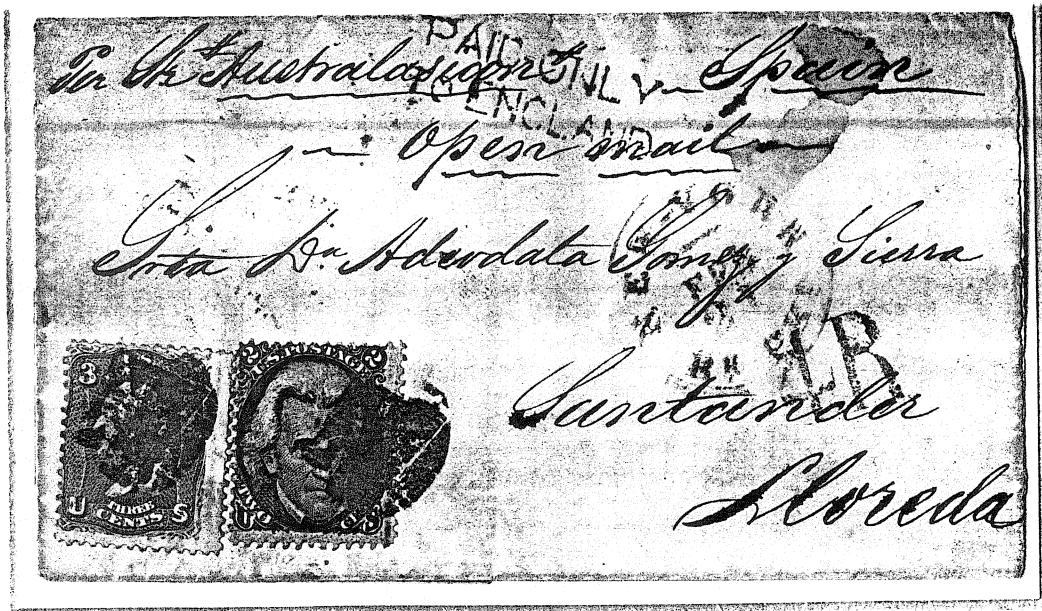 Per Str Australasian Spain
PAID ONLY
TO ENGLAND
open mail
Srta Da Adeodata Gomez y Sierra
Santander
Lloreda
3
U S
THREE
CENTS
2 U.S. POSTAGE 2
U S